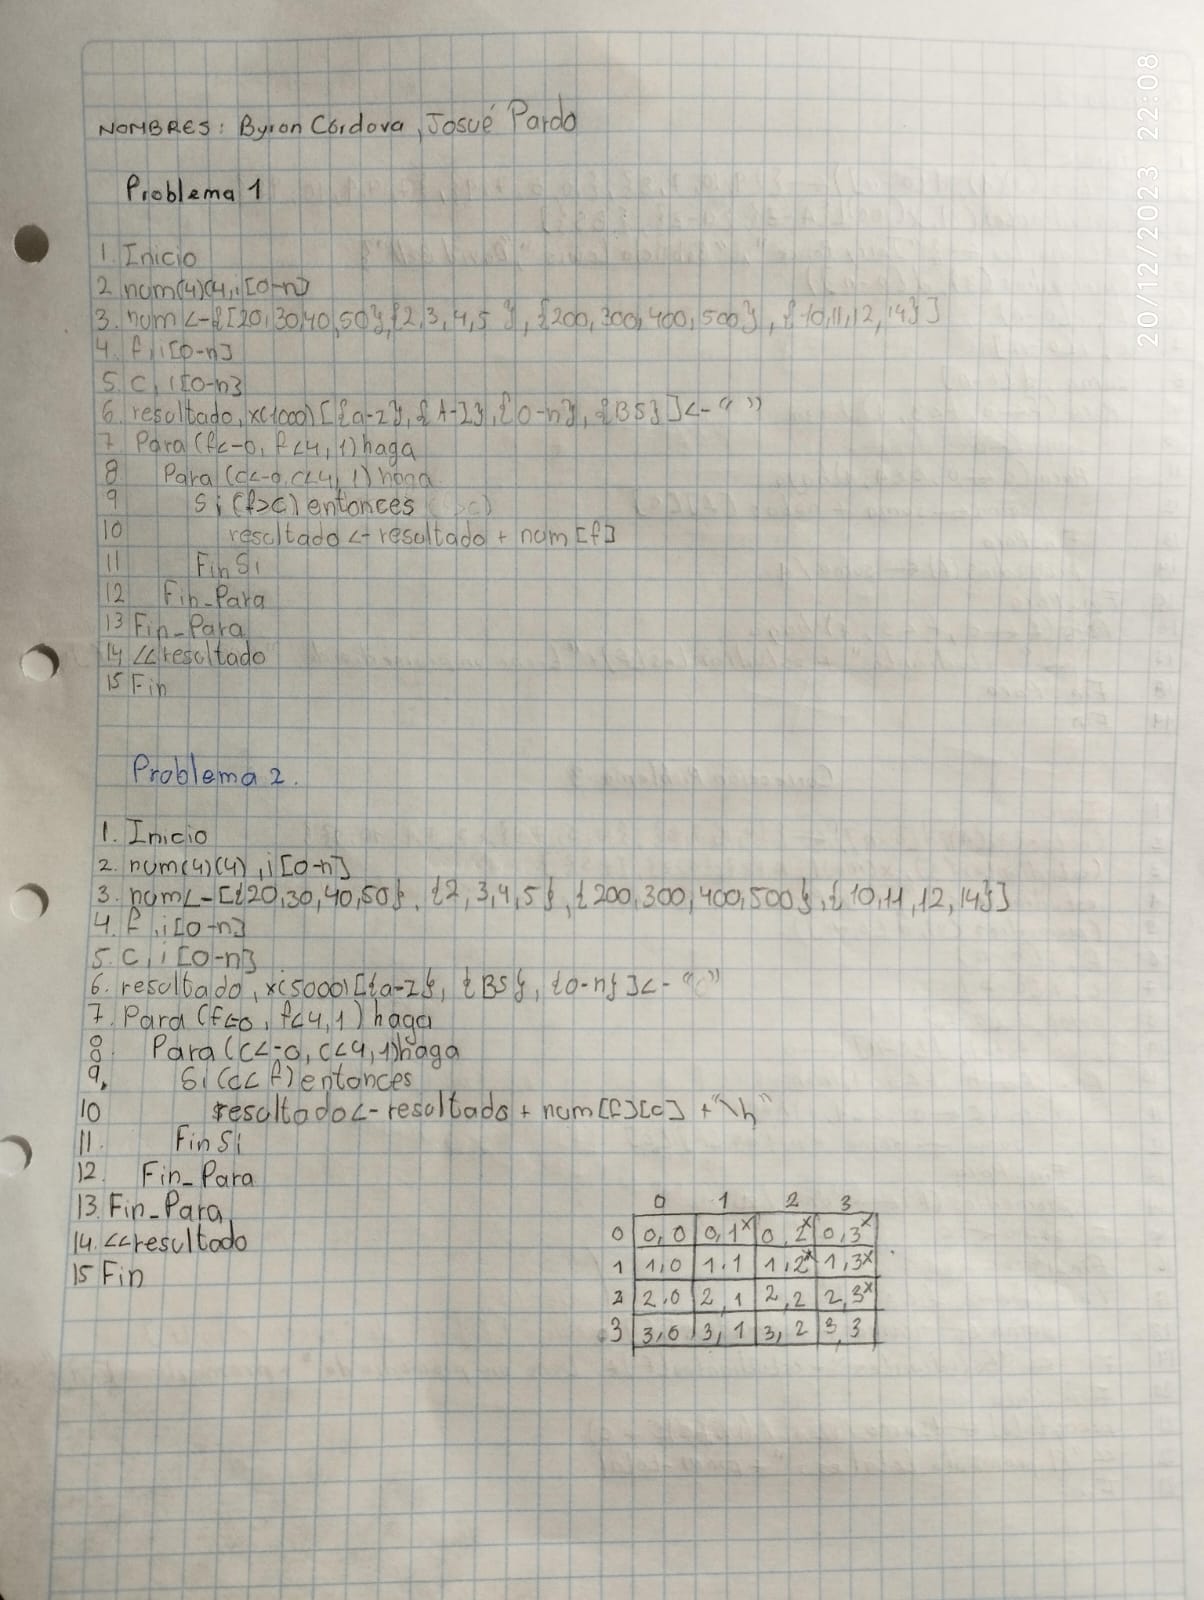 NOMBRES: Byron Córdova, Josué Pardo
Problema 1
1. Inicio
2 num(4)(4,i[0-n]
3. num <-{[20,30,40,50},{2,3,4,5 }, {200,300,400,500}, {10,11,12,14}]
4. f,i[0-n]
5. c, i[0-n]
6. resultado, x(1000)[{a-z},{A-Z},{0-n},{BS}]<-" "
7 Para (f<-0, f<4, 1) haga
8 Para (c<-0, c<4, 1) haga
9 Si (f>c) entonces
10 resultado <- resultado + num[f]
11 Fin Si
12 Fin_Para
13 Fin_Para
14 <<resultado
15 Fin
Problema 2.
1. Inicio
2. num(4)(4),i[0-n]
3. num<-[{20,30,40,50}, {2,3,4,5}, {200,300,400,500},{10,11,12,14}]
4. f,i[0-n]
5. c,i[0-n]
6. resultado, x(5000)[{a-z}, {BS}, {0-n}]<-" "
7. Para (f<-0, f<4,1) haga
8. Para (c<-0, c<4,1)haga
9. Si (c< f) entonces
10 resultado<- resultado + num[f][c] +"\n"
11. Fin Si
12. Fin_Para
13. Fin_Para
14. <<resultado
15 Fin
0 1 2 3
0 0,0 0,1x 0,2x 0,3x
1 1,0 1,1 1,2x 1,3x
2 2,0 2,1 2,2 2,3x
3 3,0 3,1 3,2 3,3
20/12/2023 22:08